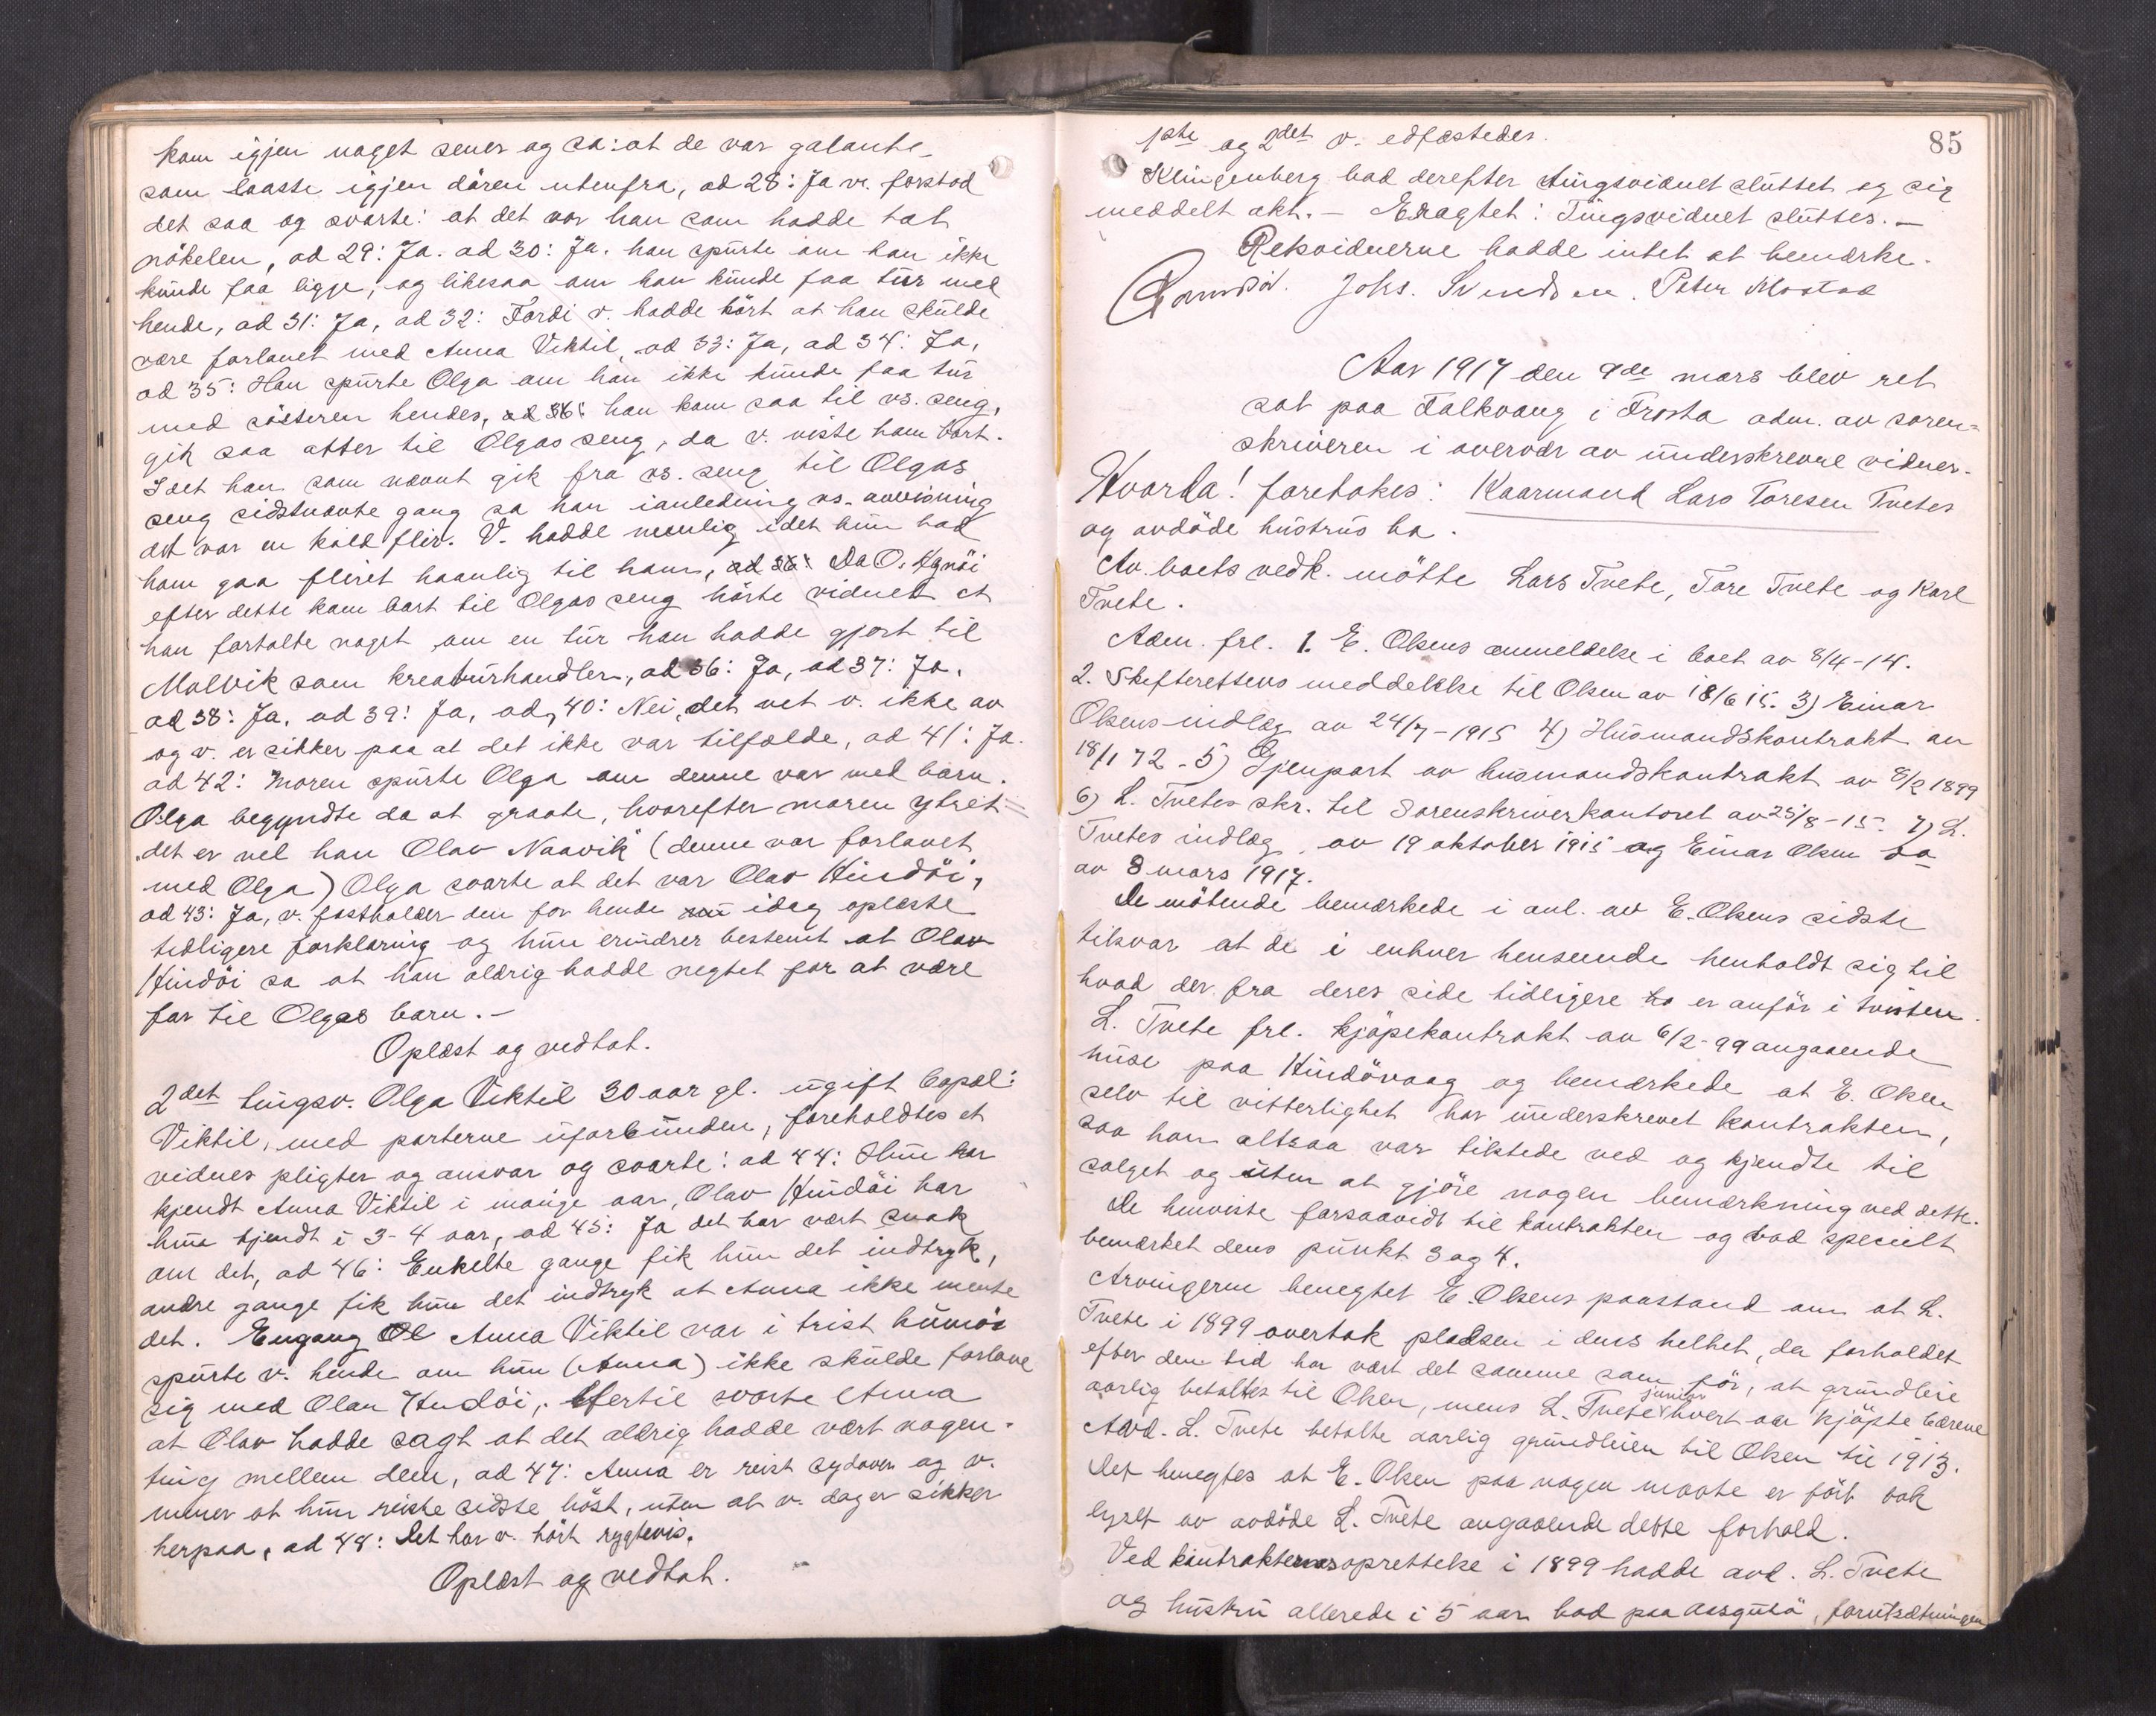 kom igjen noget sener og sa: at de var galante
som laaste igjen dören utenfra, ad 28: Ja v. forstod
det saa og svarte: at det var han som hadde tat
nökelen, ad 29: Ja. ad 30: Ja. han spurte om han ikke
kunde faa ligge, og likesaa om han kunde faa tur med
hende, ad 31: Ja, ad 32: Fordi v. hadde hört at han skulde
være forlovet med Anna Viktil, ad 33: Ja, ad 34: Ja,
ad 35: Han spurte Olga om han ikke kunde faa tur
med sösteren hendes, ad 36: han kom saa til vs. seng,
gik saa atter til Olgas seng, da v. viste ham bort.
Idet han som nævnt gik fra vs. seng til Olgas
seng sidstnævnte gang sa han ianledning vs. avvisning
det var en kald flir. V. hadde nemlig idet hun bad
ham gaa fliret haanlig til ham, ad 36: Da O.
efter dette kom bort til Olgas seng hörte vidnet at
han fortalte noget om en tur han hadde gjort til
Malvik som kreaturhandler, ad 36: Ja, ad 37: Ja.
ad 38: Ja, ad 39: Ja, ad 40: Nei, det vet v. ikke av
og v. er sikker paa at det ikke var tilfælde, ad 41: Ja.
ad 42: Moren spurte Olga om denne var med barn.
Olga begyndte da at graate, hvorefter moren ytret =
"det er vel han Olav Naavik" (denne var forlovet
med Olga) Olga svarte at det var Olav Hindöi,
ad 43: Ja, v. fastholder den for hende nu idag oplæste
tidligere forklaring og hun erindrer bestemt at Olav
Hindöi sa at han aldrig hadde negtet for at være
far til Olgas barn. -
Oplæst og vedtat.
2det tingsv. Olga Viktil 30 aar gl. ugift bopæl:
Viktil, med parterne uforbunden, foreholdtes et
vidnes pligter og ansvar og svarte: ad 44: Hun har
kjendt Anna Viktil i mange aar, Olav Hindöi har
hun kjendt i 3-4 aar, ad 45: Ja det har vært snak
om det, ad 46: Enkelte gange fik hun det indtryk,
andre gange fik hun det indtryk at Anna ikke mente
det. Engang Ol Anna Viktil var i trist humör
spurte v. hende om hun (Anna) ikke skulde forlove
sig med Olav Hindöi, hertil svarte Anna
at Olav hadde sagt at det aldrig hadde vært nogen-
ting mellem dem, ad 47: Anna er reist sydover og v.
mener at hun reiste sidste höst, uten at v. dog er sikker
herpaa, ad 48: Det har v. hört rygtevis.
Oplæst og vedtat.
85
1ste og 2det v. edfæstedes.
Klingenberg bad derefter tingsvidnet sluttet og sig
meddelt akt. - Eragtet: Tingsvidnet sluttes. -
Retsvidnerne hadde intet at bemærke.
Johs. Svendsen. Peter Mostad
Aar 1917 den 9de mars blev ret
sat paa Falkvang i Frosta adm. av soren=
skriveren i overvær av underskrevne vidner.
Hvorda! foretokes: Kaarmand Lars Toresen Tvetes
og avdöde hustrus bo.
Av boets vedk. mötte Lars Tvete, Tore Tvete og Karl
Tvete.
Adm. frl. 1. E. Olsens anmeldelse i boet av 8/4-14.
2. Skifterettens meddelelse til Olsen av 18/6 15. 3) Einar
Olsens indlæg av 24/7-1915 4) Husmandskontrakt av
18/1 72 - 5) Gjenpart av husmandskontrakt av 8/2 1899
6) L. Tvetes skr. til Sorenskriverkontoret av 25/8-15. 7) L.
Tvetes indlæg av 19 oktober 1915 og Einar Olsen
av 8 mars 1917.
De mötende bemærkede i anl. av E. Olsens sidste
tilsvar at de i enhver henseende henholdt sig til
hvad der fra deres side tidligere er anför i tvisten.
L. Tvete frl. kjöpekontrakt av 6/2-99 angaaende
huse paa Hindövaag og bemærkede at E. Olsen
selv til vitterlighet har underskrevet kontrakten,
saa han altsaa var tilstede ved og kjendte til
salget og uten at gjöre nogen bemærkning ved dette.
De henviste forsaavidt til kontrakten og bad specielt
bemærket dens punkt 3 og 4.
Arvingerne benegtet E. Olsens paastand om at L.
Tvete i 1899 overtok pladsen i dens helhet, da forholdet
efter den tid har vært det samme som för, at grundleie
aarlig betaltes til Olsen, mens L. Tvete junior hvert aar kjöpte bærene
Avd. L. Tvete betalte aarlig grundleien til Olsen til 1913.
Det benegtes at E. Olsen paa nogen maate er fört bak
lyset av avdöde L. Tvete angaaende dette forhold.
Ved kontraktens oprettelse i 1899 hadde avd. L. Tvete
og hustru allerede i 5 aar bod paa forutsætningen